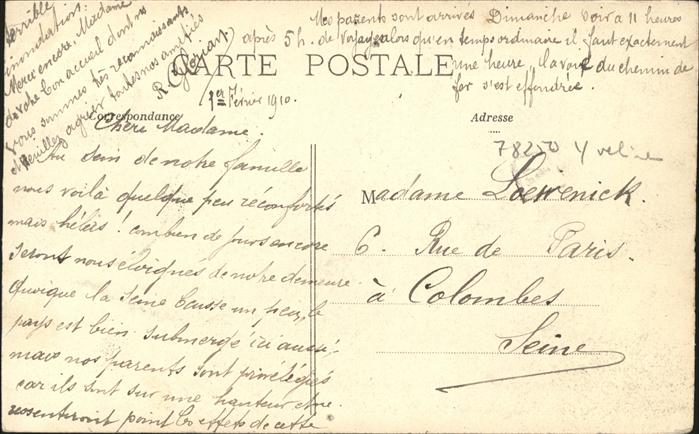 1er Février 1910.
Chère Madame.
Au sein de notre famille
nous voilà quelque peu réconfortés
mais hélas! combien de jours encore
serons nous éloignés de notre demeure.
Quoique la Seine baisse un peu, le
pays est bien submergé ici aussi;
mais nos parents sont privilégiés
car ils sont sur une hauteur et ne
ressentiront point les effets de cette
terrible
inondation.
Merci encore, Madame
de votre bon accueil dont nous
vous sommes très reconnaissants
et veuillez agréer toutes nos amitiés
R.
Mes parents sont arrivés Dimanche soir à 11 heures
après 5h. de voyage alors qu'en temps ordinaire il faut exactement
une heure, la voie du chemin de
fer s'est effondrée.
CARTE POSTALE
Correspondance
Adresse
78250 Yvelines
Madame Loewenick.
6. Rue de Paris.
à Colombes
Seine